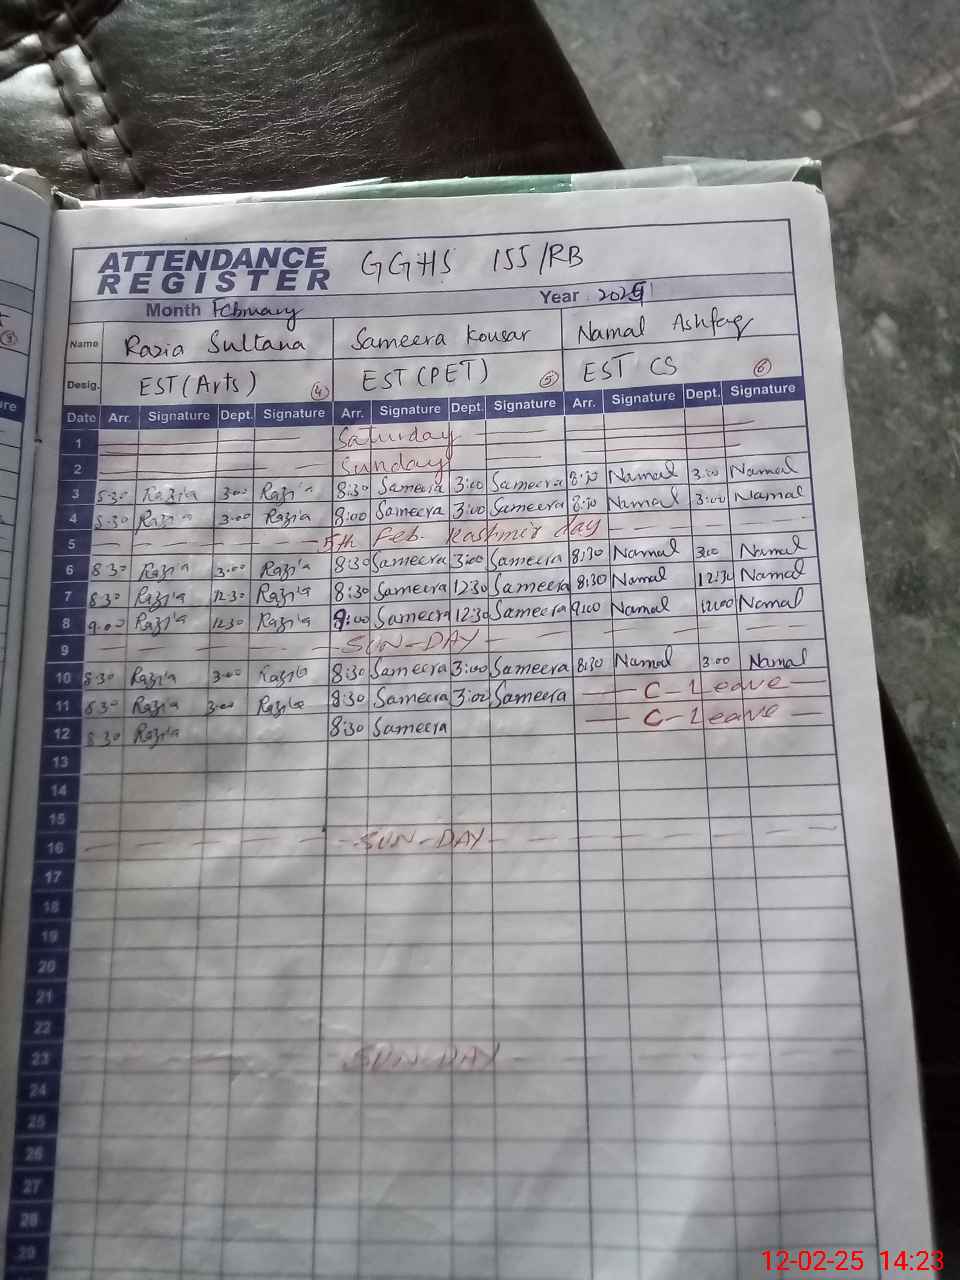 ATTENDANCE REGISTER GGHS 155/RB
Month February Year 2025
Name Razia Sultana Sameera Kousar Namal Ashfaq
Desig. EST (Arts) 4 EST (PET) 5 EST CS 6
Date Arr. Signature Dept. Signature Arr. Signature Dept. Signature Arr. Signature Dept. Signature
1 Saturday
2 Sunday
3 8:30 Razia 3:00 Razia 8:30 Sameera 3:00 Sameera 8:30 Namal 3:00 Namal
4 8:30 Razia 3:00 Razia 8:00 Sameera 3:00 Sameera 8:30 Namal 3:00 Namal
5 5th Feb. Kashmir day
6 8:30 Razia 3:00 Razia 8:30 Sameera 3:00 Sameera 8:30 Namal 3:00 Namal
7 8:30 Razia 12:30 Razia 8:30 Sameera 12:30 Sameera 8:30 Namal 12:30 Namal
8 9:00 Razia 12:30 Razia 9:00 Sameera 12:30 Sameera 9:00 Namal 12:00 Namal
9 SUN-DAY
10 8:30 Razia 3:00 Razia 8:30 Sameera 3:00 Sameera 8:30 Namal 3:00 Namal
11 8:30 Razia 3:00 Razia 8:30 Sameera 3:00 Sameera C-Leave
12 8:30 Razia 8:30 Sameera C-Leave
13
14
15
16 SUN-DAY
17
18
19
20
21
22
23 SUN-DAY
24
25
26
27
28
29
12-02-25 14:23